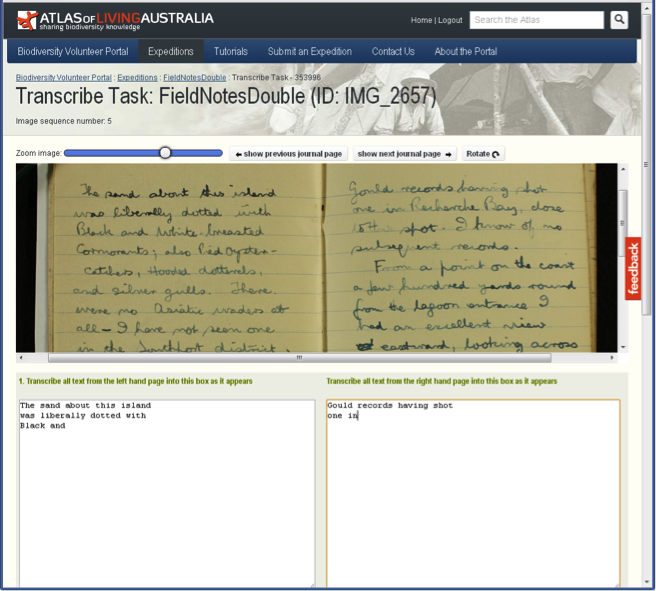 ATLAS OF LIVING AUSTRALIA
sharing biodiversity knowledge
Home | Logout
Search the Atlas
Biodiversity Volunteer Portal Expeditions Tutorials Submit an Expedition Contact Us About the Portal
Biodiversity Volunteer Portal : Expeditions : FieldNotesDouble : Transcribe Task - 353996
Transcribe Task: FieldNotesDouble (ID: IMG_2657)
Image sequence number: 5
Zoom image:
show previous journal page
show next journal page
Rotate
The sand about this island
was liberally dotted with
Black and White-breasted
Cormorants; also Pied Oyster-
catchers, Hooded dotterels,
and silver gulls. There
were no Asiatic waders at
all - I have not seen one
in the Southport district.
Gould records having shot
one in Recherche Bay, close
to spot. I know of no
subsequent records.
From a point on the coast
a few hundred yards round
from the lagoon entrance I
had an excellent view
eastward, looking across
feedback
1. Transcribe all text from the left hand page into this box as it appears
The sand about this island
was liberally dotted with
Black and
Transcribe all text from the right hand page into this box as it appears
Gould records having shot
one in